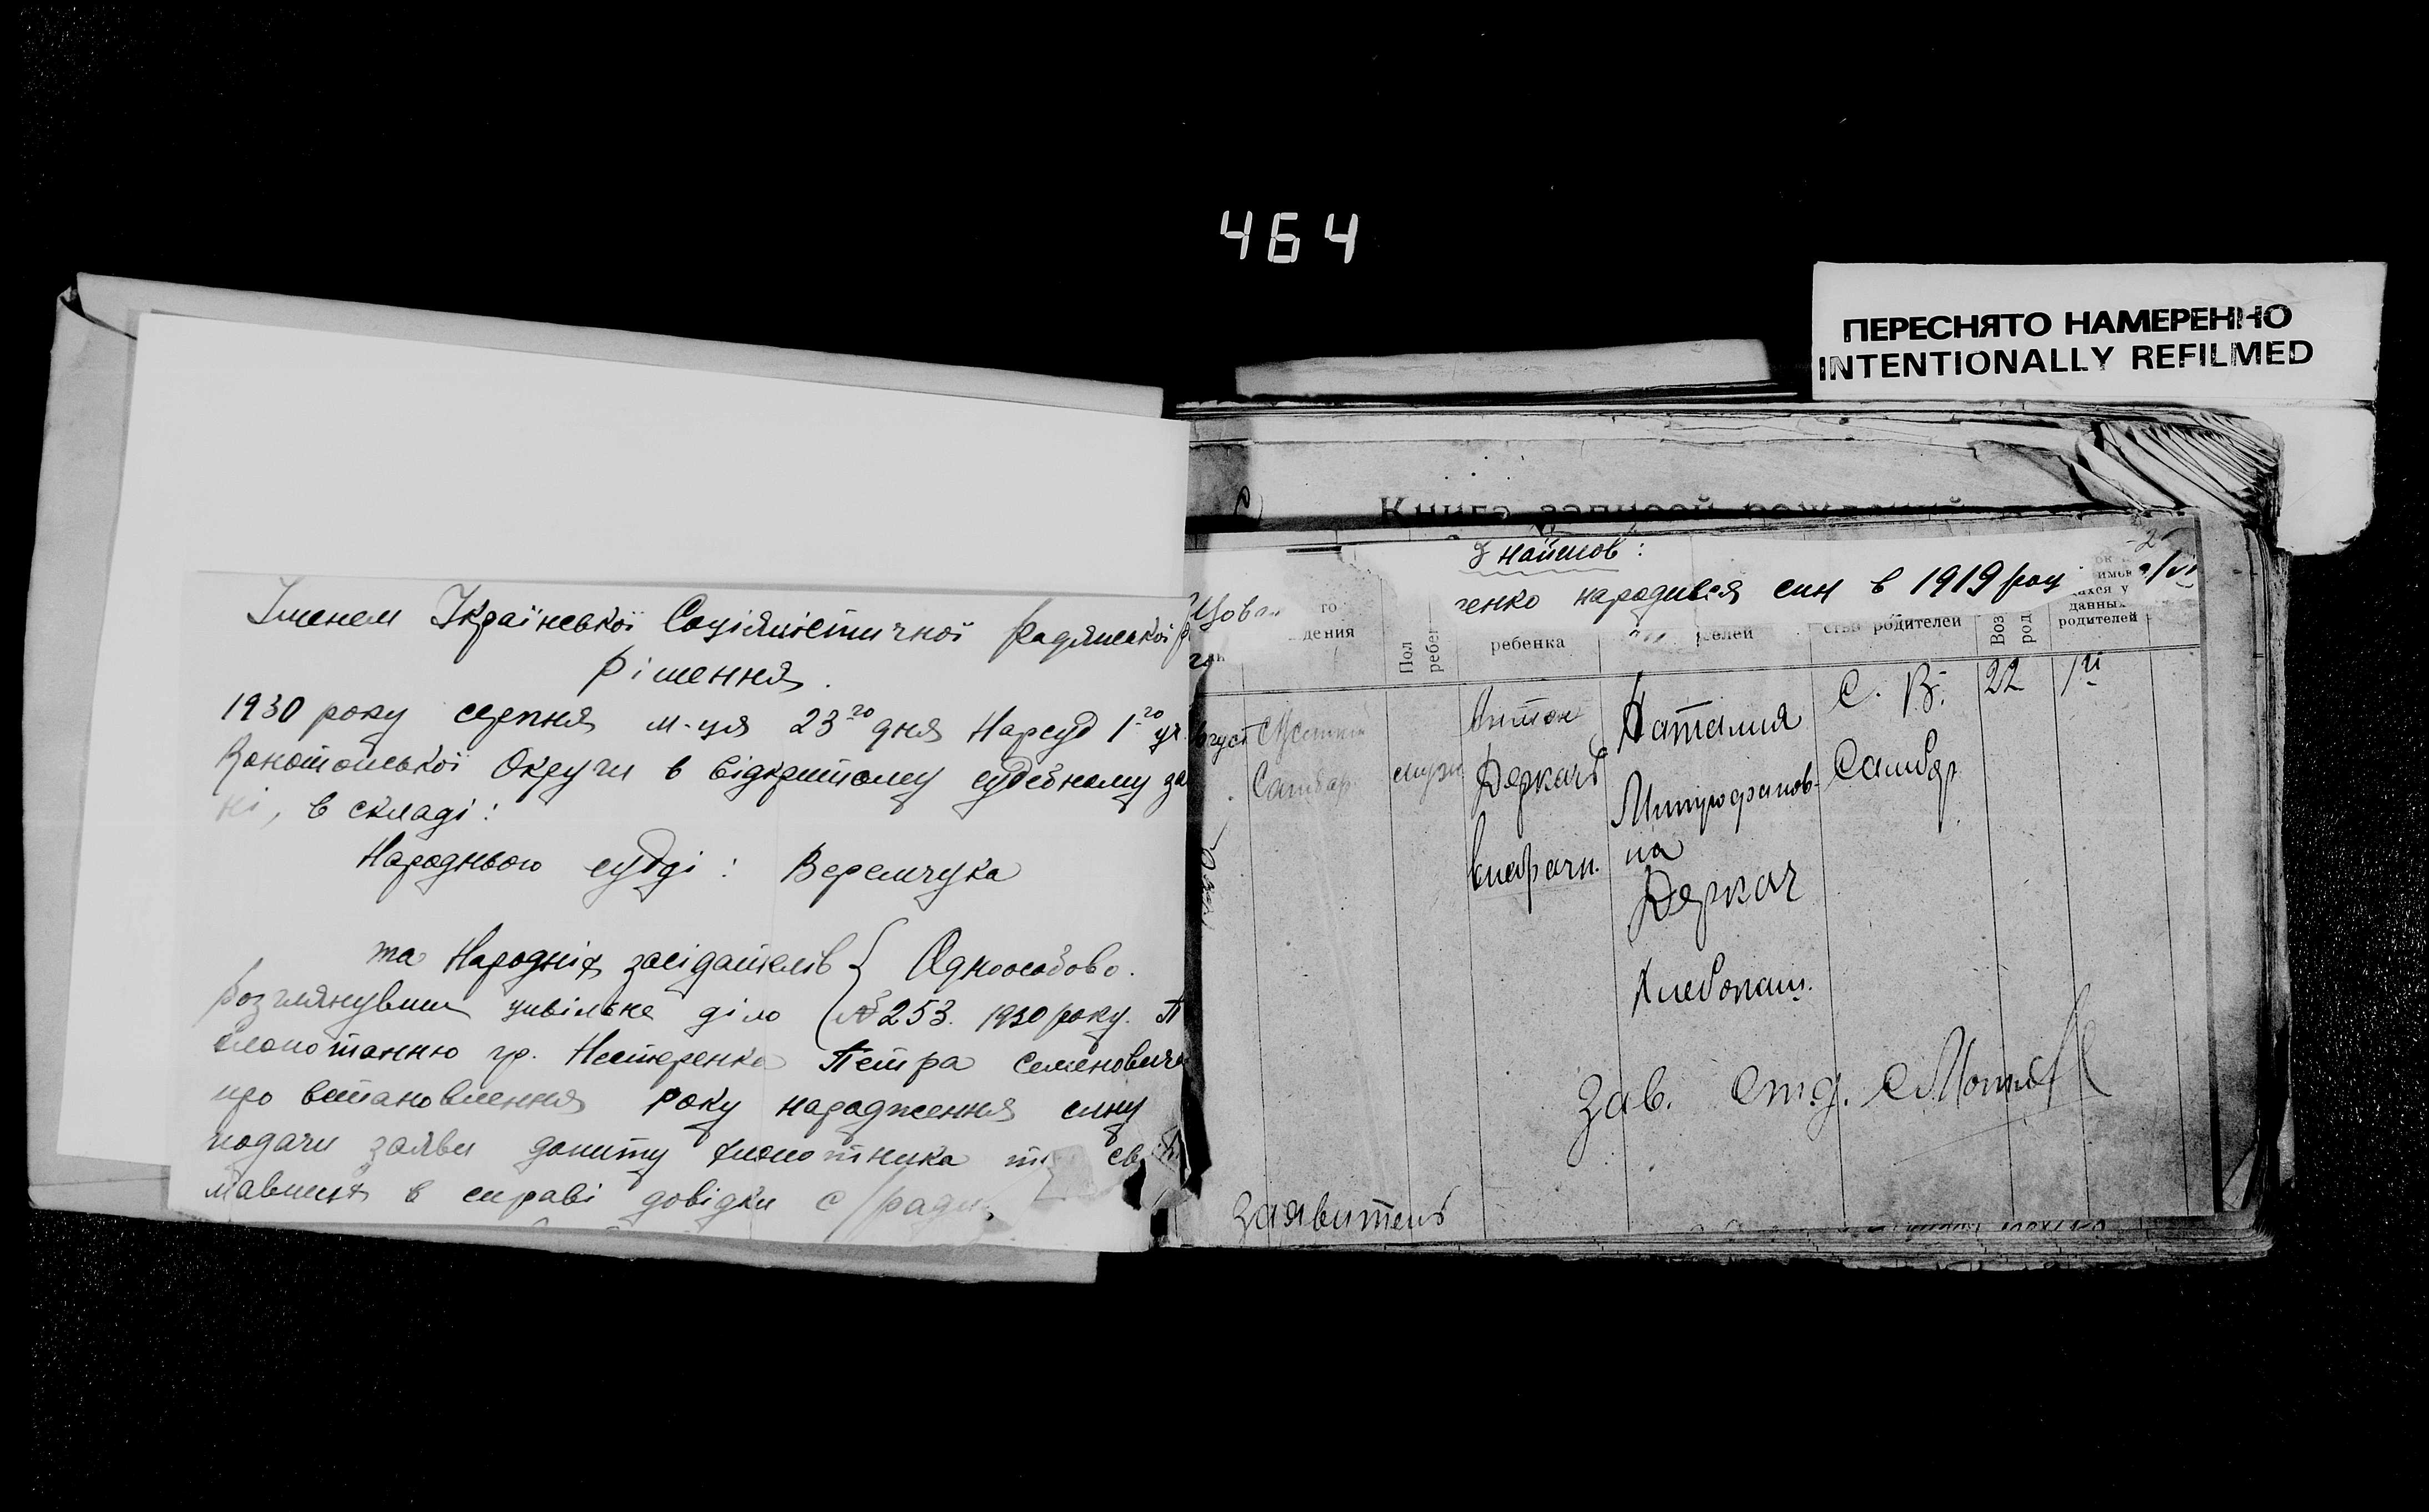 464
ПЕРЕСНЯТО НАМЕРЕННО
INTENTIONALLY REFILMED
Іменем Української Соціялістичної Радянської
Рішення.
1930 року серпня м-ця 23го дня Нарсуд 1-го уч.
Конотопської Округи в відкритому судебному за
ні, в складі:
Народнього судді: Веремчука
та Народніх засідателів { Одноособово.
Розглянувши цивільне діло № 253. 1930 року. П
клопотанню гр. Нестеренка Петра Семеновича
про встановлення року народження сину
подачи заяви допиту клопотника св
мавших в справі довідки с/ради
Книга записей рождений
знайшов:
ченко народився син в 1919 року
то
дения
Пол
ребен
ребенка
телей
ство родителей
Воз
род
имею
ихся у
данных
родителей
август
Самбор
мужи
Антон
Деркачъ
внебрачн.
Наталия
Митрофанов-
на
Деркач
Хлебопаш.
С. В.
Самбор
22
1й
Зав. Отд.
Заявитель